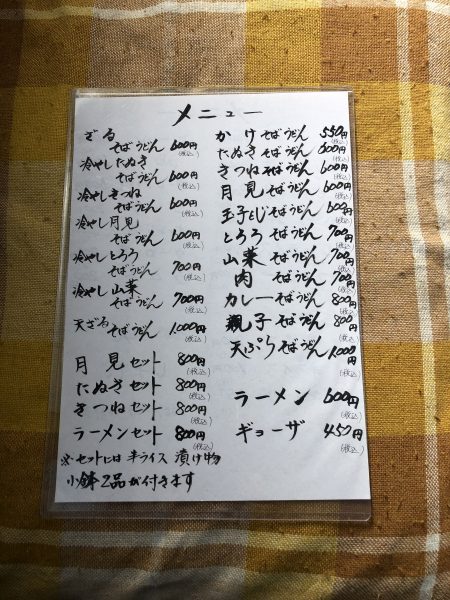 メニュー
ざる
そばうどん 600円
(税込)
冷やしたぬき
そばうどん 600円
(税込)
冷やしきつね
そばうどん 600円
(税込)
冷やし月見
そばうどん 600円
(税込)
冷やしとろろ
そばうどん 700円
(税込)
冷やし山菜
そばうどん 700円
(税込)
天ざる
そばうどん 1,000円
(税込)
月見セット 800円
(税込)
たぬきセット 800円
(税込)
きつねセット 800円
(税込)
ラーメンセット 800円
(税込)
※セットには半ライス 漬け物
小鉢2品が付きます
かけそばうどん 550円
(税込)
たぬきそばうどん 600円
(税込)
きつねそばうどん 600円
(税込)
月見そばうどん 600円
(税込)
玉子とじそばうどん 600円
(税込)
とろろそばうどん 700円
(税込)
山菜そばうどん 700円
(税込)
肉そばうどん 700円
(税込)
カレーそばうどん 800円
(税込)
親子そばうどん 800円
(税込)
天ぷらそばうどん 1,000円
(税込)
ラーメン 600円
(税込)
ギョーザ 450円
(税込)